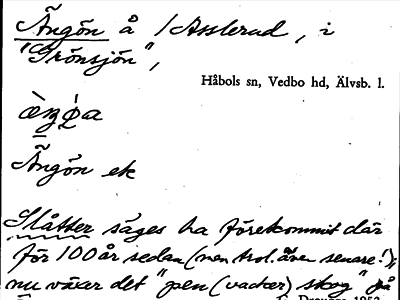 Ängön å /Asslerud, i
"Grönsjön",
Håbols sn, Vedbo hd, Älvsb. l.
Ängön ek
Slåtter säges ha förekommit där
för 100 år sedan (men trol. även senare!);
nu växer det "pen (vacker) skog" på